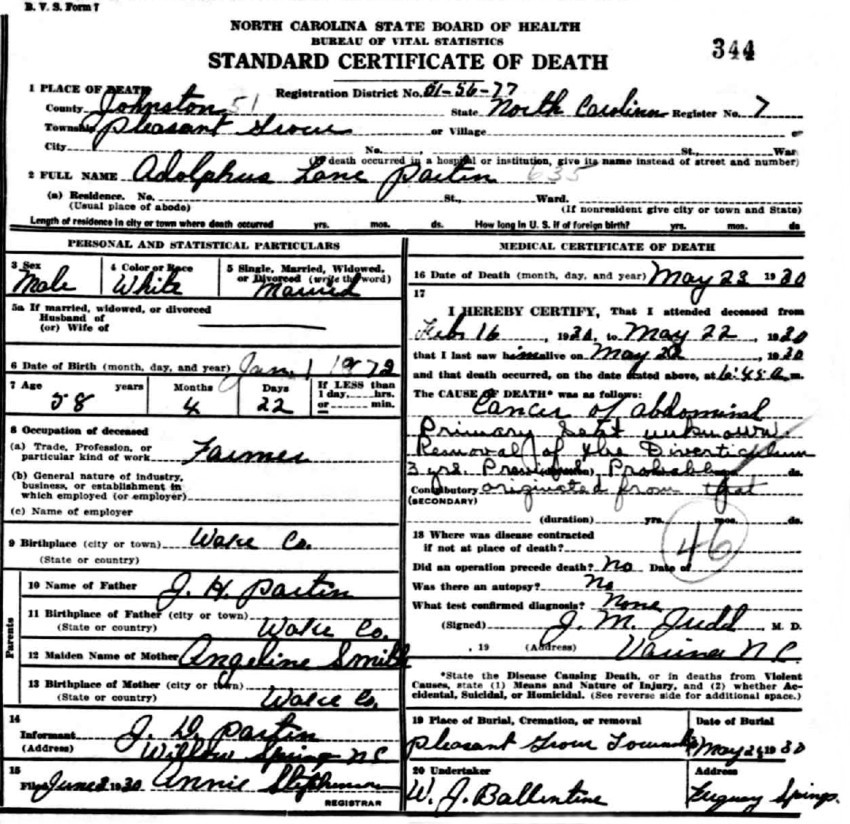 B. V. S. Form 7
NORTH CAROLINA STATE BOARD OF HEALTH
BUREAU OF VITAL STATISTICS
STANDARD CERTIFICATE OF DEATH
344
1 PLACE OF DEATH
Registration District No. 51-56-77
County Johnston 51 State North Carolina Register No. 7
Township Pleasant Grove or Village or
City No. St., War
(If death occurred in a hospital or institution, give its name instead of street and number)
2 FULL NAME Adolphus Lane Partin 635
(a) Residence. No. St., Ward.
(Usual place of abode) (If nonresident give city or town and State)
Length of residence in city or town where death occurred yrs. mos. ds. How long in U. S. if of foreign birth? yrs. mos. ds
PERSONAL AND STATISTICAL PARTICULARS
3 Sex 4 Color or Race 5 Single, Married, Widowed, or Divorced (write the word)
Male White Married
5a If married, widowed, or divorced
Husband of
(or) Wife of
6 Date of Birth (month, day, and year) Jan. 1 1872
7 Age years Months Days If LESS than 1 day, hrs. or min.
58 4 22
8 Occupation of deceased
(a) Trade, Profession, or particular kind of work Farmer
(b) General nature of industry, business, or establishment in which employed (or employer)
(c) Name of employer
9 Birthplace (city or town) Wake Co.
(State or country)
Parents
10 Name of Father J. H. Partin
11 Birthplace of Father (city or town)
(State or country) Wake Co.
12 Maiden Name of Mother Angeline Smith
13 Birthplace of Mother (city or town)
(State or country) Wake Co.
14
Informant J. D. Partin
(Address) Willow Spring NC
15
Filed June 2 1930 Annie Stephenson
REGISTRAR
MEDICAL CERTIFICATE OF DEATH
16 Date of Death (month, day, and year) May 23 1930
17
I HEREBY CERTIFY, That I attended deceased from
Feb 16, 1930, to May 22, 1930
that I last saw him alive on May 22, 1930
and that death occurred, on the date stated above, at 6:45 a. m.
The CAUSE OF DEATH* was as follows:
Cancer of abdominal
Primary Seat unknown.
Removal of the Diverticulum
3 yrs. Probably ds.
Contributory originated from that
(SECONDARY)
(duration) yrs. mos. ds.
46
18 Where was disease contracted
if not at place of death?
Did an operation precede death? No Date of
Was there an autopsy? No
What test confirmed diagnosis? None
(Signed) J. M. Judd M. D.
, 19 (Address) Varina N.C.
*State the Disease Causing Death, or in deaths from Violent
Causes, state (1) Means and Nature of Injury, and (2) whether Ac-
cidental, Suicidal, or Homicidal. (See reverse side for additional space.)
19 Place of Burial, Cremation, or removal Date of Burial
Pleasant Grove Township May 1930
20 Undertaker Address
W. J. Ballentine Fuquay Springs.